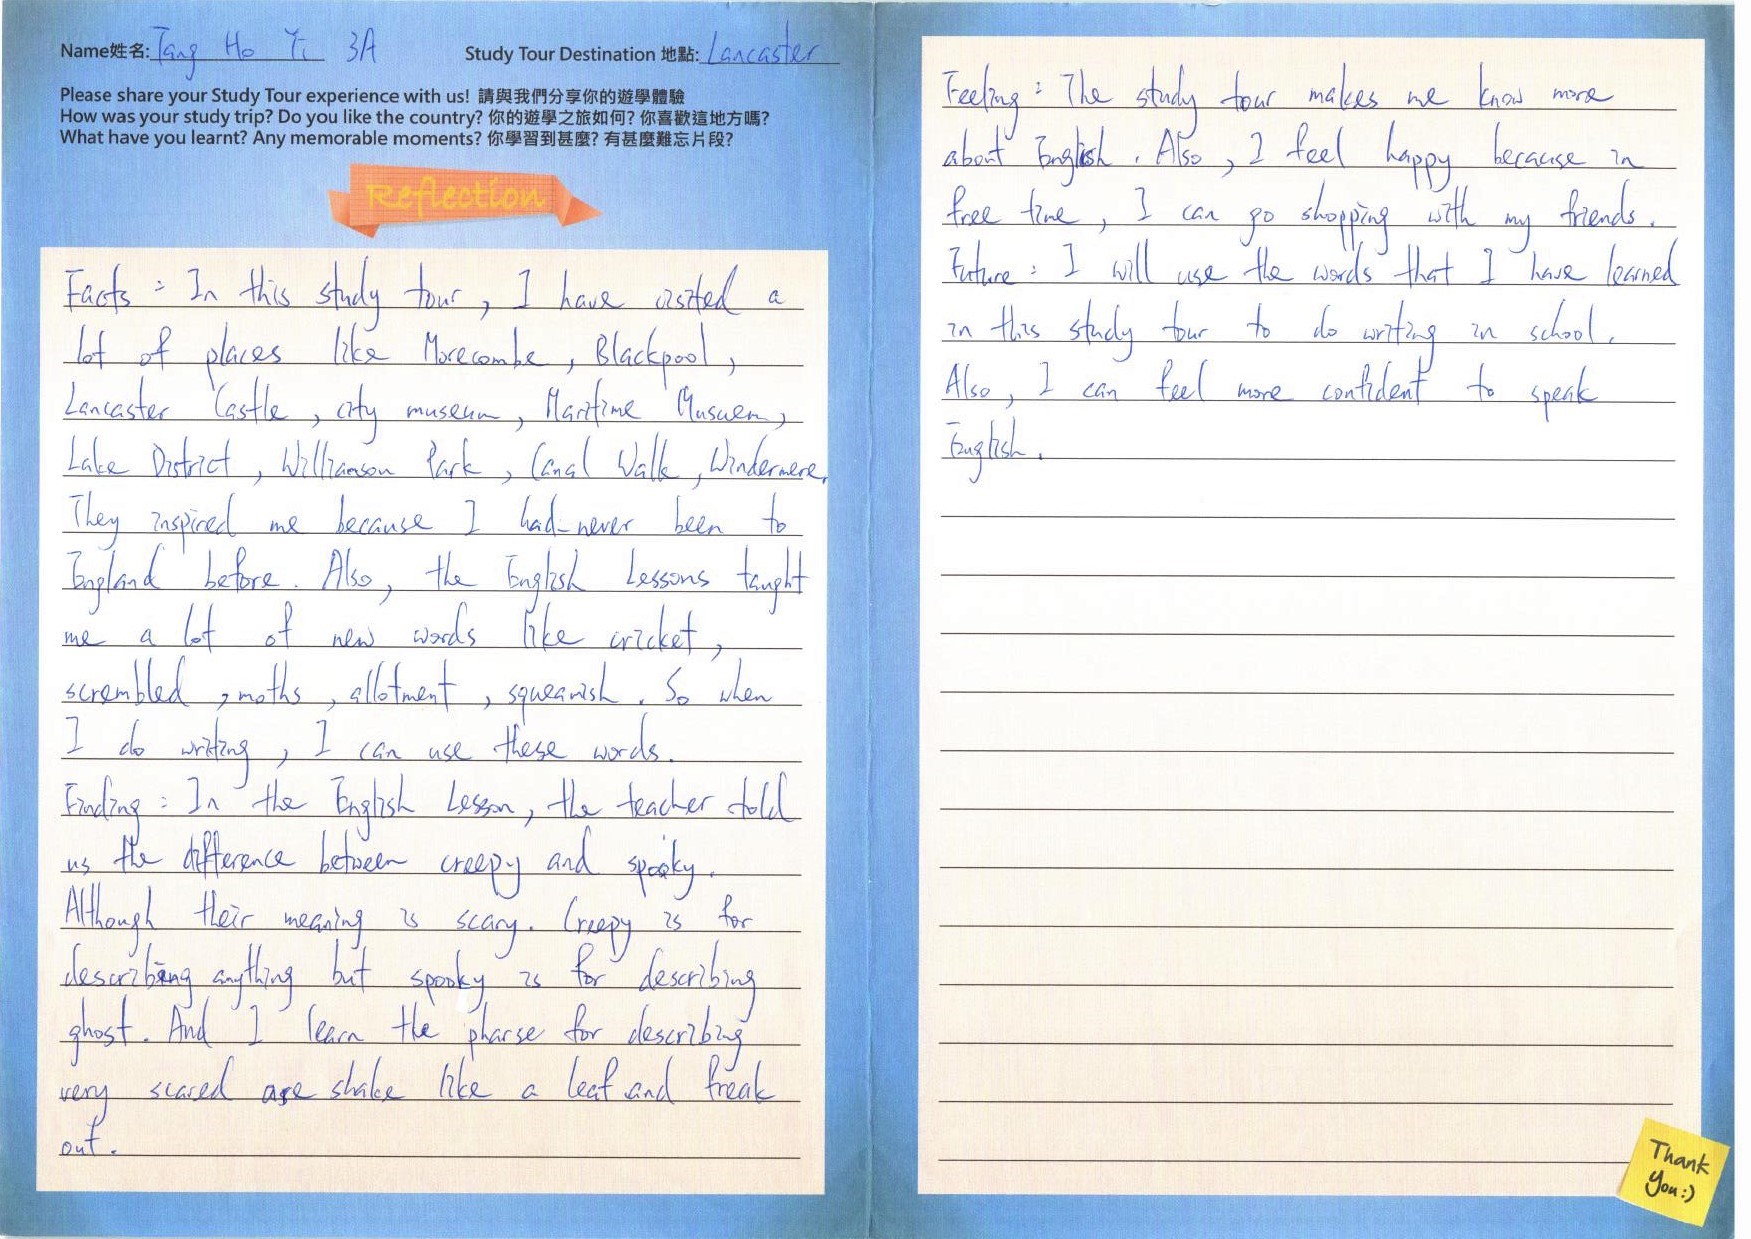 Name姓名: Tang Ho Yi 3A
Study Tour Destination 地點: Lancaster
Please share your Study Tour experience with us! 請與我們分享你的遊學體驗
How was your study trip? Do you like the country? 你的遊學之旅如何? 你喜歡這地方嗎?
What have you learnt? Any memorable moments? 你學習到甚麼? 有甚麼難忘片段?
Reflection
Facts : In this study tour , I have visited a
lot of places like Morecombe , Blackpool ,
Lancaster Castle , city museum , Maritime Musuem ,
Lake District , Williamson Park , Canal Walk , Windermere.
They inspired me because I had never been to
England before. Also , the English Lessons taught
me a lot of new words like cricket ,
scrembled , moths , allotment , squeamish . So when
I do writing , I can use these words.
Finding : In the English Lesson , the teacher told
us the difference between creepy and spooky.
Although their meaning is scary. Creepy is for
describing anything but spooky is for describing
ghost. And I learn the pharse for describing
very scared are shake like a leaf and freak
out.
Feeling : The study tour makes me know more
about English . Also , I feel happy because in
free time , I can go shopping with my friends.
Future : I will use the words that I have learned
in this study tour to do writing in school.
Also , I can feel more confident to speak
English.
Thank
you:)